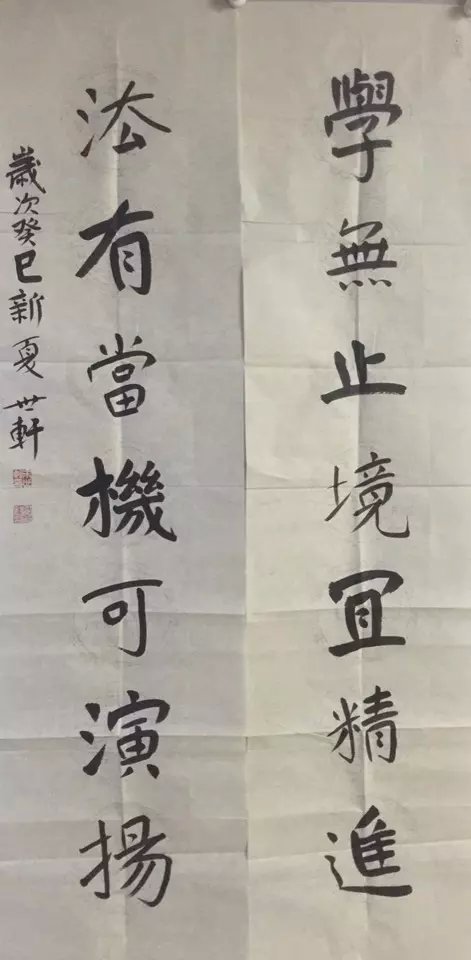 學無止境冝精進
法有當機可演揚
歲次癸巳新夏世軒